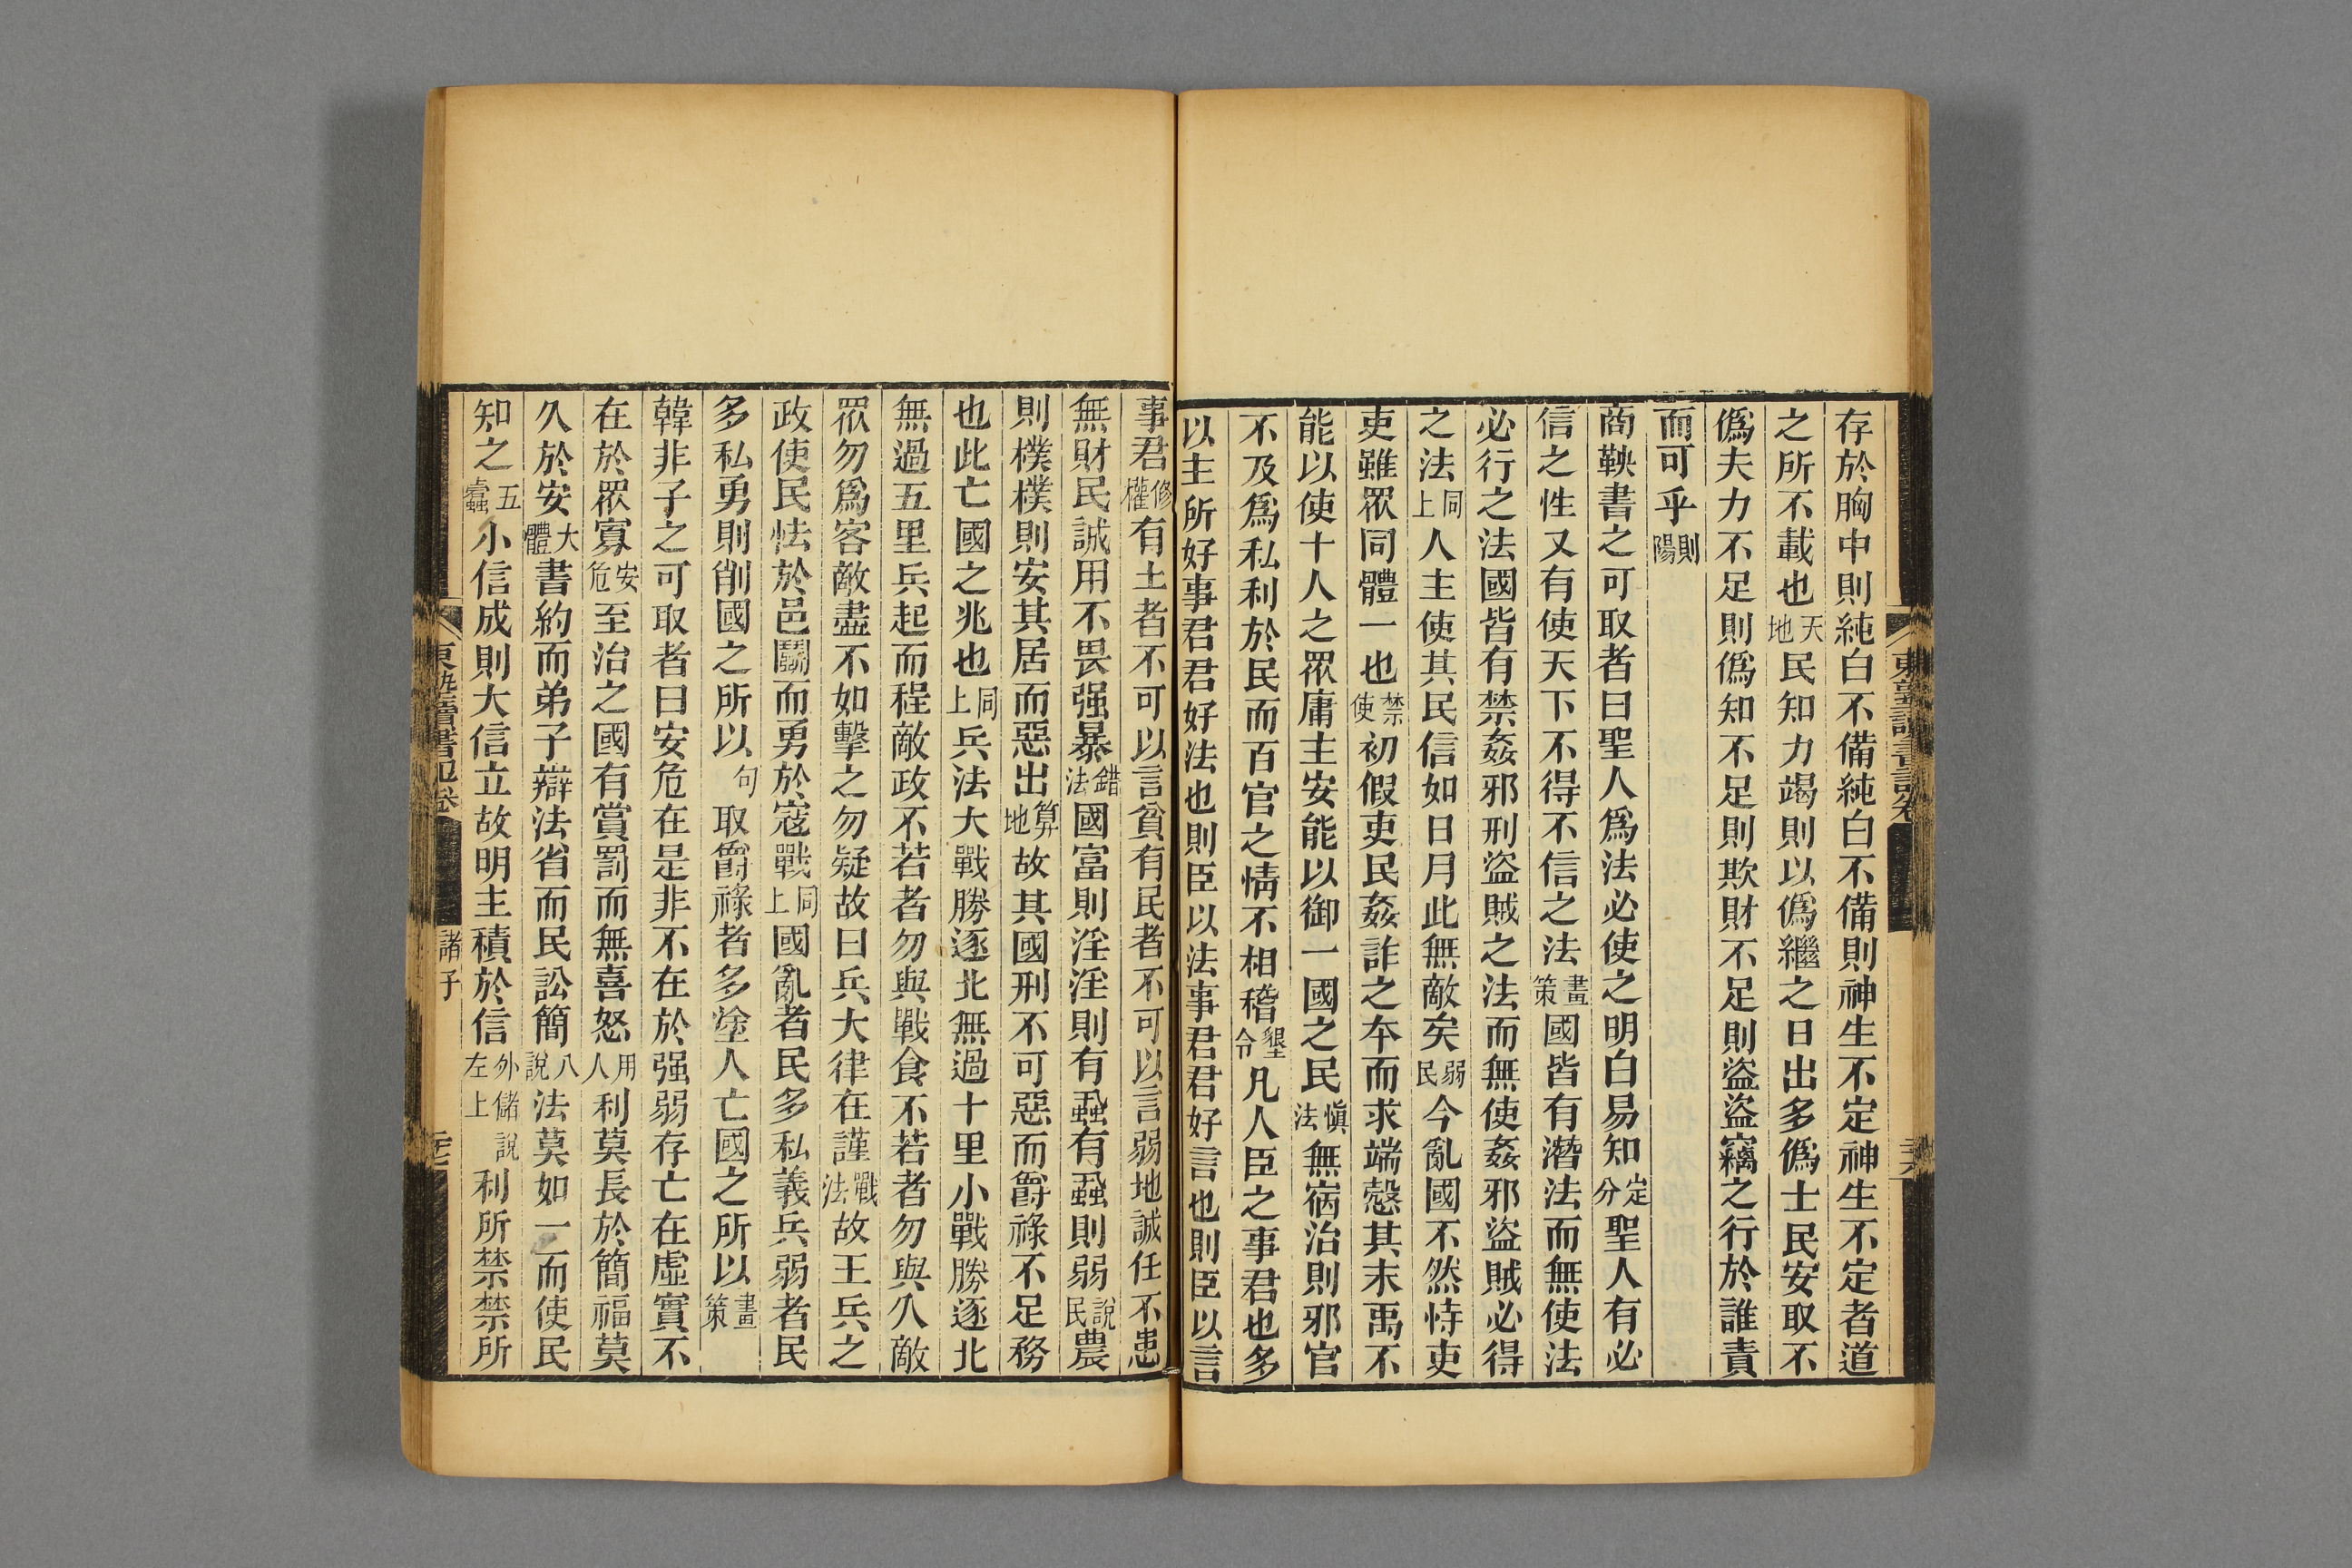 存於胸中則純白不備純白不備則神生不定神生不定者道
之所不載也天地民知力竭則以僞繼之日出多僞士民安取不
僞夫力不足則僞知不足則欺財不足則盜盜竊之行於誰責
而可乎則陽
商鞅書之可取者曰聖人爲法必使之明白易知定分聖人有必
信之性又有使天下不得不信之法畫策國皆有潛法而無使法
必行之法國皆有禁姦邪刑盜賊之法而無使姦邪盜賊必得
之法同上人主使其民信如日月此無敵矣弱民今亂國不然恃吏
吏雖眾同體一也禁使初假吏民姦詐之本而求端愨其末禹不
能以使十人之眾庸主安能以御一國之民愼法無病治則邪官
不及爲私利於民而百官之情不相稽墾令凡人臣之事君也多
以主所好事君君好法也則臣以法事君君好言也則臣以言
事君修權有土者不可以言貧有民者不可以言弱地誠任不患
無財民誠用不畏强暴錯法國富則淫淫則有蝨有蝨則弱說民農
則樸樸則安其居而惡出算地故其國刑不可惡而爵祿不足務
也此亡國之兆也同上兵法大戰勝逐北無過十里小戰勝逐北
無過五里兵起而程敵政不若者勿與戰食不若者勿與久敵
眾勿爲客敵盡不如擊之勿疑故曰兵大律在謹戰法故王兵之
政使民怯於邑鬭而勇於寇戰同上國亂者民多私義兵弱者民
多私勇則削國之所以句取爵祿者多塗人亡國之所以畫策
韓非子之可取者曰安危在是非不在於强弱存亡在虛實不
在於眾寡安危至治之國有賞罰而無喜怒用人利莫長於簡福莫
久於安大體書約而弟子辯法省而民訟簡八說法莫如一而使民
知之五蠹小信成則大信立故明主積於信外儲說左上利所禁禁所
東塾讀書記卷
諸子